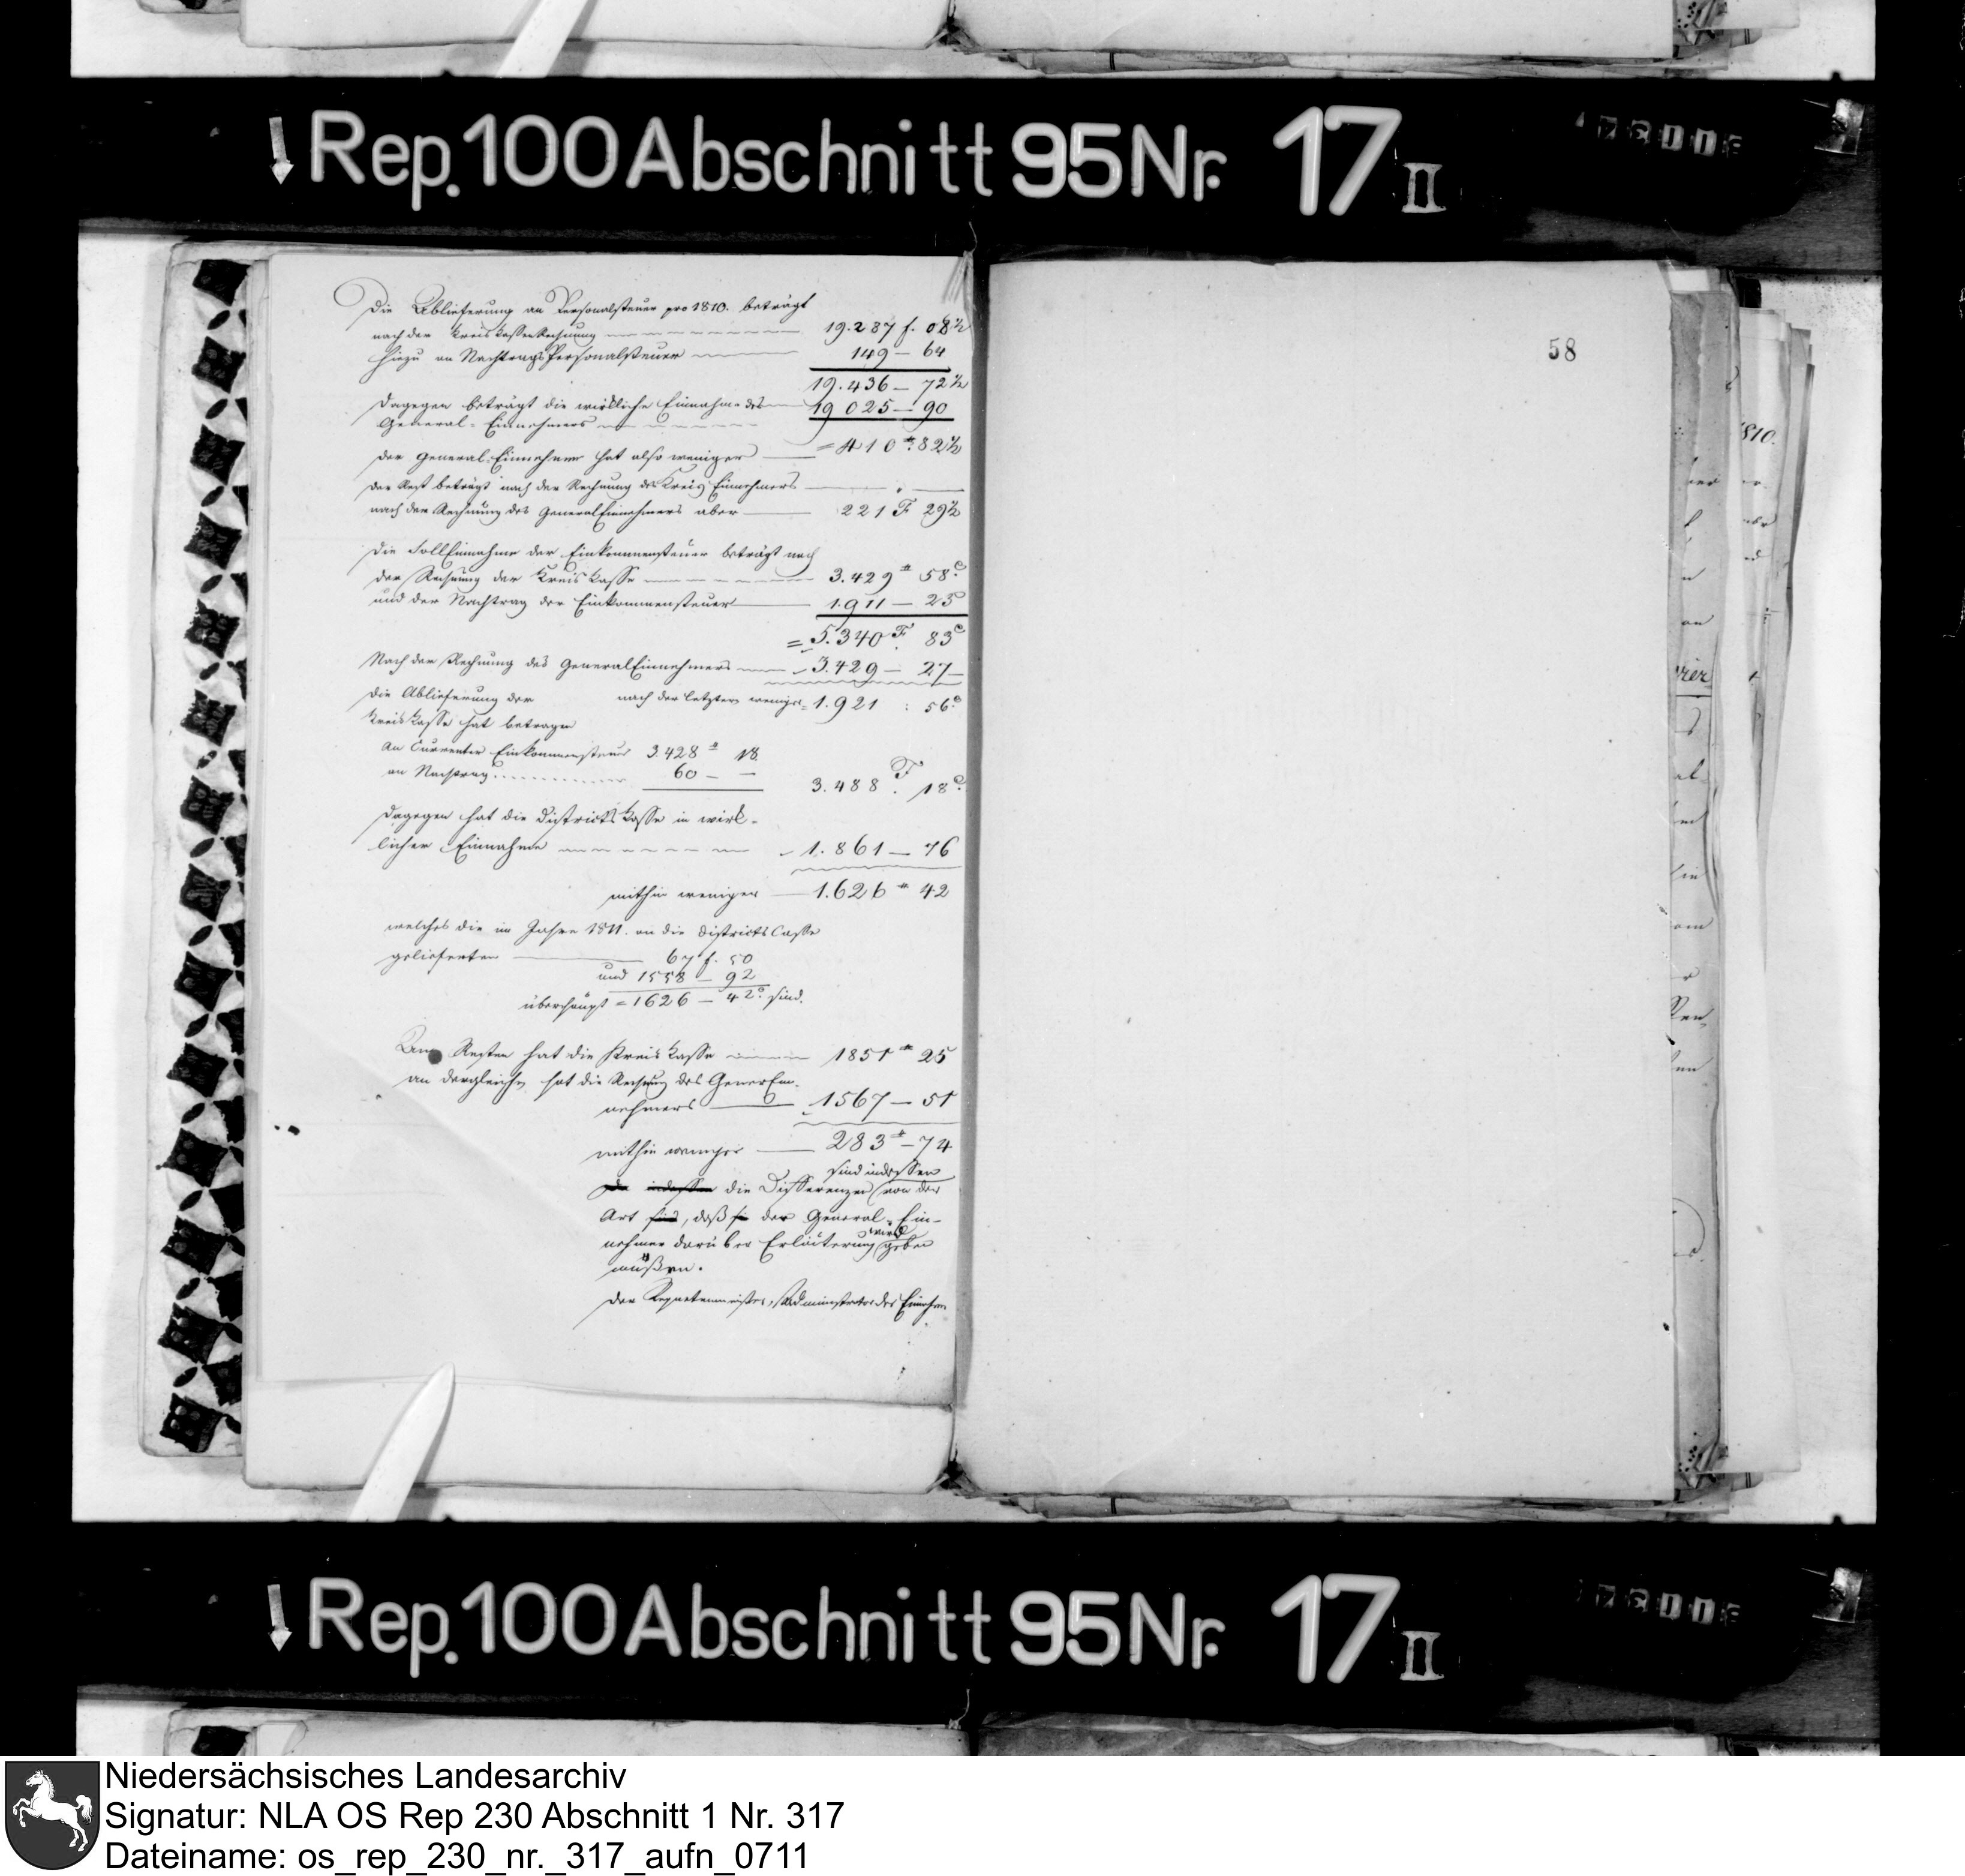 Rep. 100 Abschnitt 95 Nr. 17 II
Die Ablieferung an Personalsteuer pro 1810. beträgt
nach der Kreiskassen Rechnung 19.287 f. 08½
Hiezu an Nachtrags Personalsteuer 149 – 64
19.436 – 72½
Dagegen beträgt die wirkliche Einnahme des 19 025 – 90
General-Einnehmers
= 410 : 82½
Der General-Einnehmer hat also weniger
Der Rest beträgt nach der Rechnung des Kreis Einnehmers
nach der Rechnung des General Einnehmers aber 221 F 29½
Die Soll Einnahme der Einkommensteuer beträgt nach
der Rechnung der Kreis Kasse 3.429 58 c
und der Nachtrag der Einkommensteuer 1.911 – 25
= 5.340 F. 83 c
Nach der Rechnung des General Einnehmers 3.429 – 27
nach der letztern weniger 1.921 : 56 c
Die Ablieferung der
Kreis Kasse hat betragen
An Currenter Einkommensteuer 3.428 18.
an Nachtrag 60 – –
3.488 F. 18 c
Dagegen hat die Districts Kasse in wirk-
licher Einnahme 1.861 – 76
mithin weniger 1.626 42
welches die im Jahre 1811. an die Districts Casse
gelieferten 67 f. 50
und 1558 – 92
überhaupt = 1626 – 42 c sind.
An Resten hat die Kreis Kasse 1851 25
an dergleichen hat die Rechnung des Gener Ein-
nehmers 1567 – 51
mithin weniger 283 – 74
sind indessen
da indessen die Differenzen von der
Art sind, daß der General-Ein-
nehmer darüber Erläuterung geben
wird
müßen.
Der
58
Rep. 100 Abschnitt 95 Nr. 17 II
Niedersächsisches Landesarchiv
Signatur: NLA OS Rep 230 Abschnitt 1 Nr. 317
Dateiname: os_rep_230_nr._317_aufn_0711